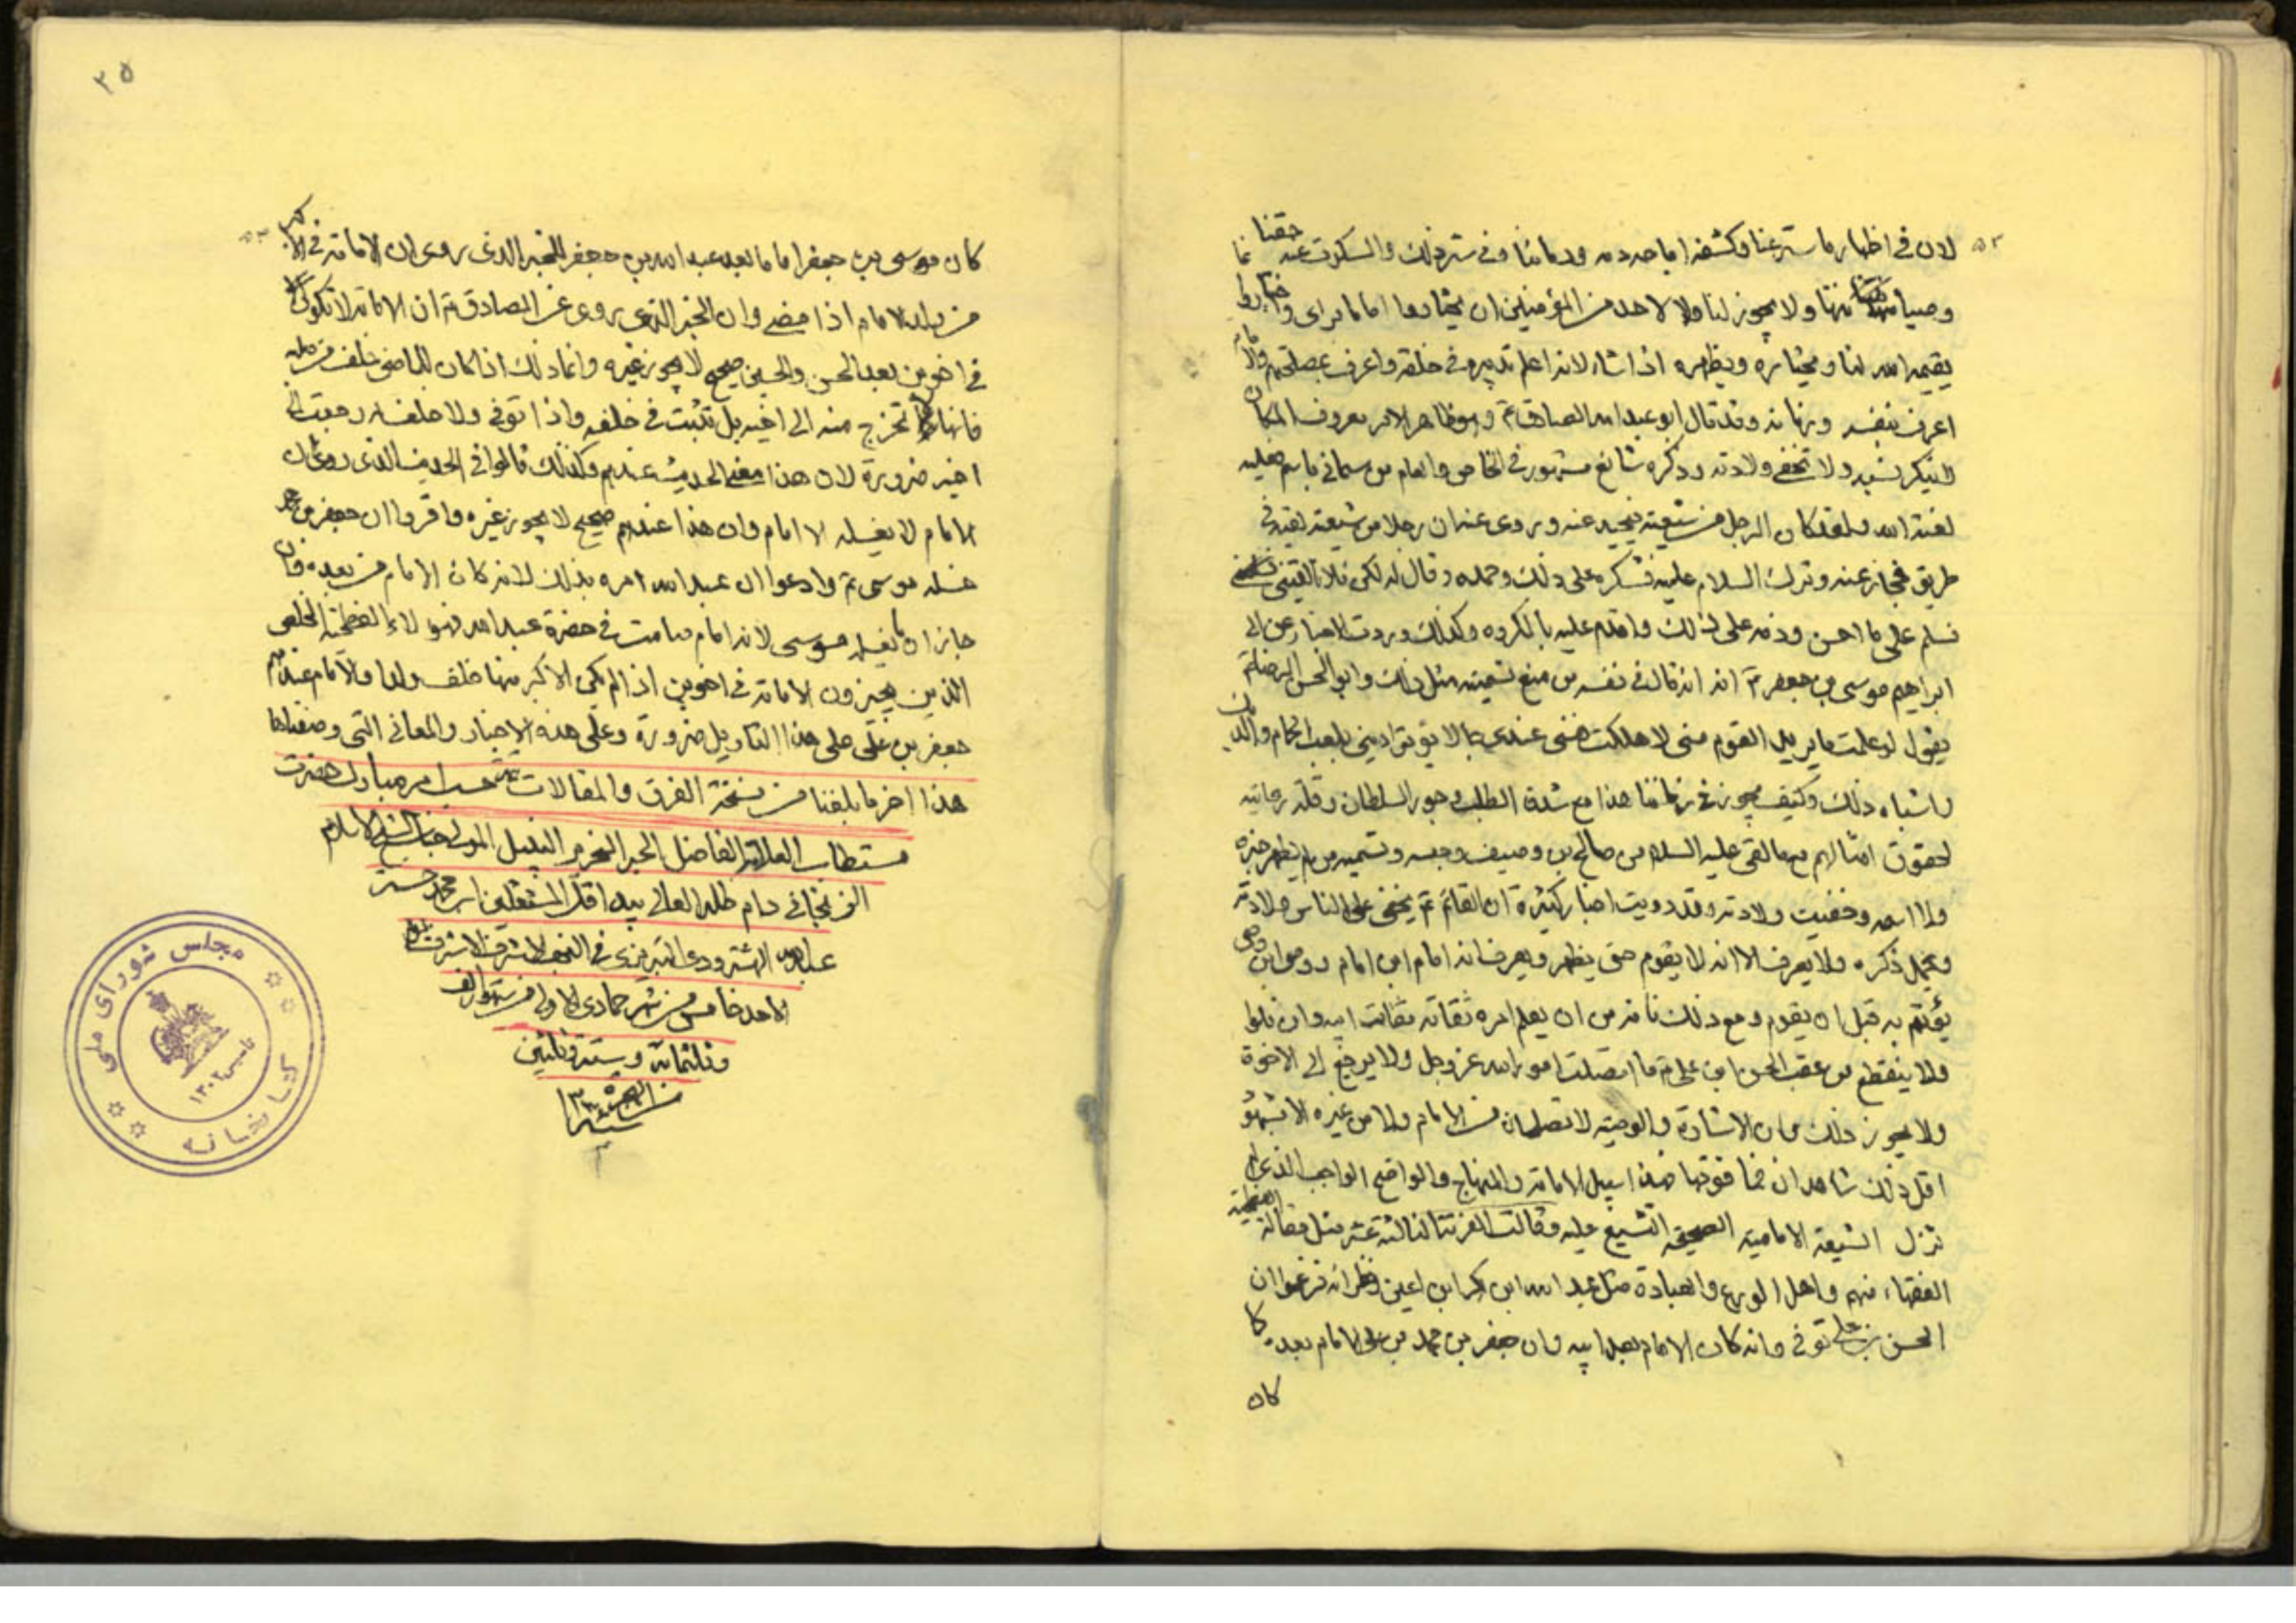 لان في اظهار ما ستر عنا وكشفه اباحة دمه ودمائنا وفي ستر ذلك والسكوت عنه حقنا
وصيانتها ولا يجوز لنا ولا لاحد من المؤمنين ان يختاروا اماما براى واختيار وانما
يقيمه الله لنا ويختاره ويظهره اذا شاء لانه اعلم بتدبيره في خلقه واعرف بمصلحتهم والامام
اعرف بنفسه وزمانه وقد قال ابو عبد الله الصادق ع وهو ظاهر الامر معروف المكان
لا ينكر نسبه ولا تخفى ولادته وذكره شائع مشهور في الخاص والعام من سماني باسم فعليه
لعنة الله ولقد كان الرجل من شيعته يحيد عنه وروى عنه ان رجلا من شيعته لقيه في
طريق فجاز عنه وترك السلام عليه فشكره على ذلك وحمده وقال له لكن فلانا لقيني
فسلم على ما احسن وذمه على ذلك واقدم عليه بالمكروه وكذلك وردت الاخبار عن ابى
ابراهيم موسى بن جعفر ع انه قال في نفسه من منع تسميته مثل ذلك وابو الحسن الرضا ع
يقول لو علمت ما يريد القوم منى لاهلكت نفسى عندى بما لا يوثق دينى بلعب الحمام والديك
واشباه ذلك وكيف يجوز في زماننا هذا مع شدة الطلب وجور السلطان وقلة رعايته
لحقوق امثالهم مع ما لقى عليه السلام من صالح بن وصيف وحبسه وتسميه من لم يظهر خبره
ولا اسمه وخفيت ولادته وقد رويت اخبار كثيرة ان القائم ع يخفى على الناس ولادته
ويخمل ذكره ولا يعرف الا انه لا يقوم حتى يظهر ويعرف انه امام ابن امام ووصى ابن وصى
يؤتم به قبل ان يقوم ومع ذلك فانه من ان يعلم امره ثقاته ثقات ابيه وان قلوا
ولا ينقطع من عقب الحسن ابن على ع ما اتصلت امور الله عز وجل ولا يرجع الى الاخوة
ولا يجوز ذلك وان الاشارة والوصية لا تصلحان من الامام ولا من غيره الا بشهود
اقل ذلك شاهدان فما فوقها فهذا سبيل الامامة والمنهاج والواضح الواجب الذى لم
تزل الشيعة الامامية الصحيحة التشيع عليه وقالت الفرقة الثالثة عشر مثل مقالة الفطحية
الفقهاء منهم واهل الورع والعبادة مثل عبد الله ابن بكر ابن اعين ونظرائه فزعموا ان
الحسن بن على توفى وانه كان الامام بعد ابيه وان جعفر بن محمد بن على الامام بعده كما
كان
٣٥
كان موسى بن جعفر اماما بعد عبد الله بن جعفر للخبر الذى روى ان الامامة في الاكبر
من ولد الامام اذا مضى وان الخبر الذى روى عن الصادق ع ان الامامة لا تكون
في اخوين بعد الحسن والحسين صحيح لا يجوز غيره وانما ذلك اذا كان للماضى خلف من صلبه
فانها لا تخرج منه الى اخيه بل تثبت في خلفه واذا توفى ولا خلف له رجعت الى
اخيه ضرورة لان هذا معنى الحديث عندهم وكذلك قالوا في الحديث الذى روى ان
الامام لا يغسله الا امام وان هذا عندهم صحيح لا يجوز غيره واقروا ان جعفر بن محمد
غسله موسى ع وادعوا ان عبد الله امره بذلك لانه كان الامام من بعده وان
جاز ان يغسله موسى لانه امام صامت في حضرة عبد الله فهؤلاء الفطحية الخلص
الذين يجيزون الامامة في اخوين اذا لم يكن الاكبر منها خلف ولدا والامام عندهم
جعفر بن على على هذا التاويل ضرورة وعلى هذه الاخبار والمعانى التى وصفناها
هذا اخر ما بلغنا من نسخة الفرق والمقالات حسب امر مبارك حضرت
مستطاب العلامة الفاضل الحبر النحرير النبيل المولى جناب شيخ الاسلام
الزنجانى دام ظله العالى بيد اقل المشتغلين ابن محمد حسن
عبد الله الشترودى التبريزى في النجف الاشرف الاشرف
الاحد خامس من شهر جمادى الاولى من سنة الف
وثلثمائة وستة وثلثين
من الهجرة
سنة
مجلس شوراى ملى
كتابخانه
تاسيس ١٣٠٢